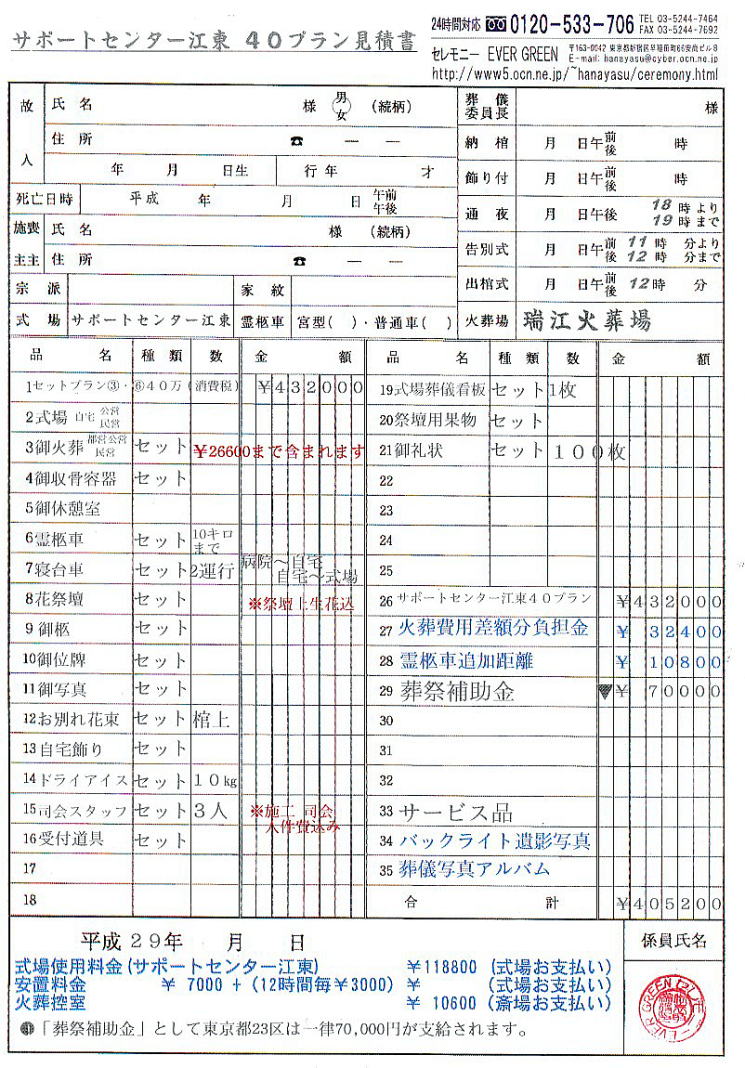 サポートセンター江東 40プラン見積書
24時間対応 0120-533-706 TEL 03-5244-7464
FAX 03-5244-7692
セレモニー EVER GREEN 〒163-0042 東京都新宿区早稲田町66安高ビル8
E-mail: hanayasu@cyber.ocn.ne.jp
http://www5.ocn.ne.jp/~hanayasu/ceremony.html
故人 氏名 様 男 女 (続柄)
住所 ☎ ― ―
年 月 日生 行年 才
死亡日時 平成 年 月 日 午前 午後
施主 喪主 氏名 様 (続柄)
住所 ☎ ― ―
宗派 家紋
式場 サポートセンター江東 霊柩車 宮型( )・普通車( )
葬儀委員長 様
納棺 月 日午前後 時
飾り付 月 日午前後 時
通夜 月 日午後 18時より 19時まで
告別式 月 日午前後 11時 分より 12時 分まで
出棺式 月 日午前後 12時 分
火葬場 瑞江火葬場
品名 種類 数 金額
1セットプラン③・⑥40万(消費税) ¥432000
2式場 自宅 公営 民営
3御火葬 都営公営 民営 セット ¥26600まで含まれます
4御収骨容器 セット
5御休憩室
6霊柩車 セット 10キロまで
7寝台車 セット 2運行 病院～自宅 自宅～式場
8花祭壇 セット ※祭壇上生花込
9御柩 セット
10御位牌 セット
11御写真 セット
12お別れ花束 セット 棺上
13自宅飾り セット
14ドライアイス セット 10kg
15司会スタッフ セット 3人 ※施工 司会 人件費込み
16受付道具 セット
17
18
品名 種類 数 金額
19式場葬儀看板 セット 1枚
20祭壇用果物 セット
21御礼状 セット 100枚
22
23
24
25
26 サポートセンター江東40プラン ¥432000
27 火葬費用差額分負担金 ¥32400
28 霊柩車追加距離 ¥10800
29 葬祭補助金 ▼¥70000
30
31
32
33 サービス品
34 バックライト遺影写真
35 葬儀写真アルバム
合計 ¥405200
平成29年 月 日
係員氏名
式場使用料金(サポートセンター江東) ¥118800 (式場お支払い)
安置料金 ¥ 7000 + (12時間毎¥3000) ¥ (式場お支払い)
火葬控室 ¥ 10600 (斎場お支払い)
「葬祭補助金」として東京都23区は一律70,000円が支給されます。
EVER GREEN